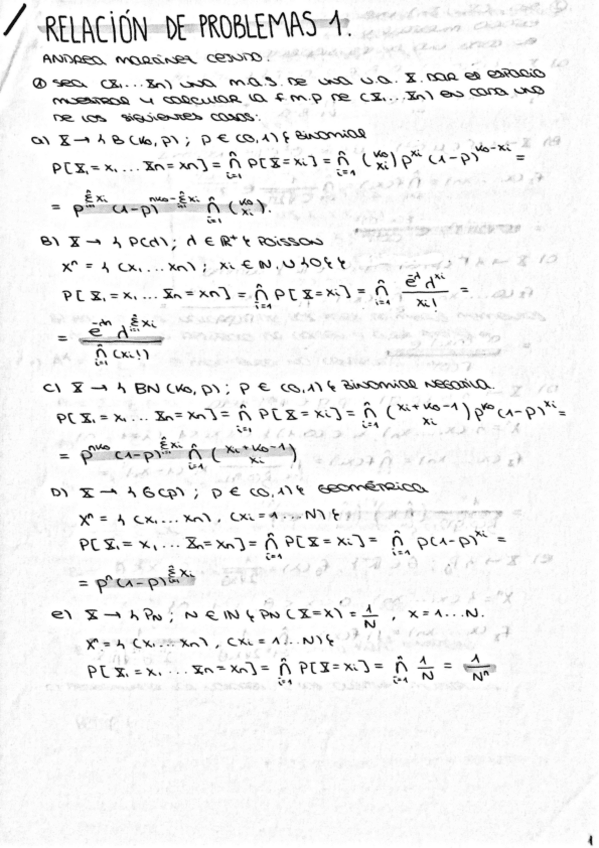 RELACIÓN DE PROBLEMAS 1.
ANDREA MARTÍNEZ CEJUDO.
① SEA (X₁...Xn) UNA M.A.S. DE UNA V.A. X. DAR EL ESPACIO
MUESTRAL Y CALCULAR LA f.m.p DE (X₁...Xn) EN CADA UNO
DE LOS SIGUIENTES CASOS:
a) X → { B(k₀,p) ; p ∈ (0,1)} BINOMIAL
P[X₁=x₁ ... Xn=xn] = ∏ⁿᵢ₌₁ P[X=xi] = ∏ⁿᵢ₌₁ (k₀ xi) p^xi (1-p)^(k₀-xi) =
= p^(Σⁿᵢ₌₁ xi) (1-p)^(nk₀-Σⁿᵢ₌₁ xi) ∏ⁿᵢ₌₁ (k₀ xi).
B) X → { P(λ) ; λ ∈ ℝ⁺} POISSON
Xⁿ = { (x₁...xn) ; xi ∈ N, U {0} }
P[X₁=x₁ ... Xn=xn] = ∏ⁿᵢ₌₁ P[X=xi] = ∏ⁿᵢ₌₁ e^-λ λ^xi / xi! =
= e^-λn λ^(Σⁿᵢ₌₁ xi) / ∏ⁿᵢ₌₁ (xi!)
C) X → { BN(k₀,p) ; p ∈ (0,1)} BINOMIAL NEGATIVA.
P[X₁=x₁ ... Xn=xn] = ∏ⁿᵢ₌₁ P[X=xi] = ∏ⁿᵢ₌₁ (xi+k₀-1 xi) p^k₀ (1-p)^xi =
= p^nk₀ (1-p)^(Σⁿᵢ₌₁ xi) ∏ⁿᵢ₌₁ (xi+k₀-1 xi)
D) X → { G(p) ; p ∈ (0,1)} GEOMÉTRICA
Xⁿ = { (x₁...xn), (xi=1...N) }
P[X₁=x₁ ... Xn=xn] = ∏ⁿᵢ₌₁ P[X=xi] = ∏ⁿᵢ₌₁ p(1-p)^xi =
= pⁿ(1-p)^(Σⁿᵢ₌₁ xi)
e) X → { PN ; N ∈ IN } PN(X=x) = 1/N , x=1...N.
Xⁿ = { (x₁...xn), (xi=1...N) }
P[X₁=x₁ ... Xn=xn] = ∏ⁿᵢ₌₁ P[X=xi] = ∏ⁿᵢ₌₁ 1/N = 1/Nⁿ
1